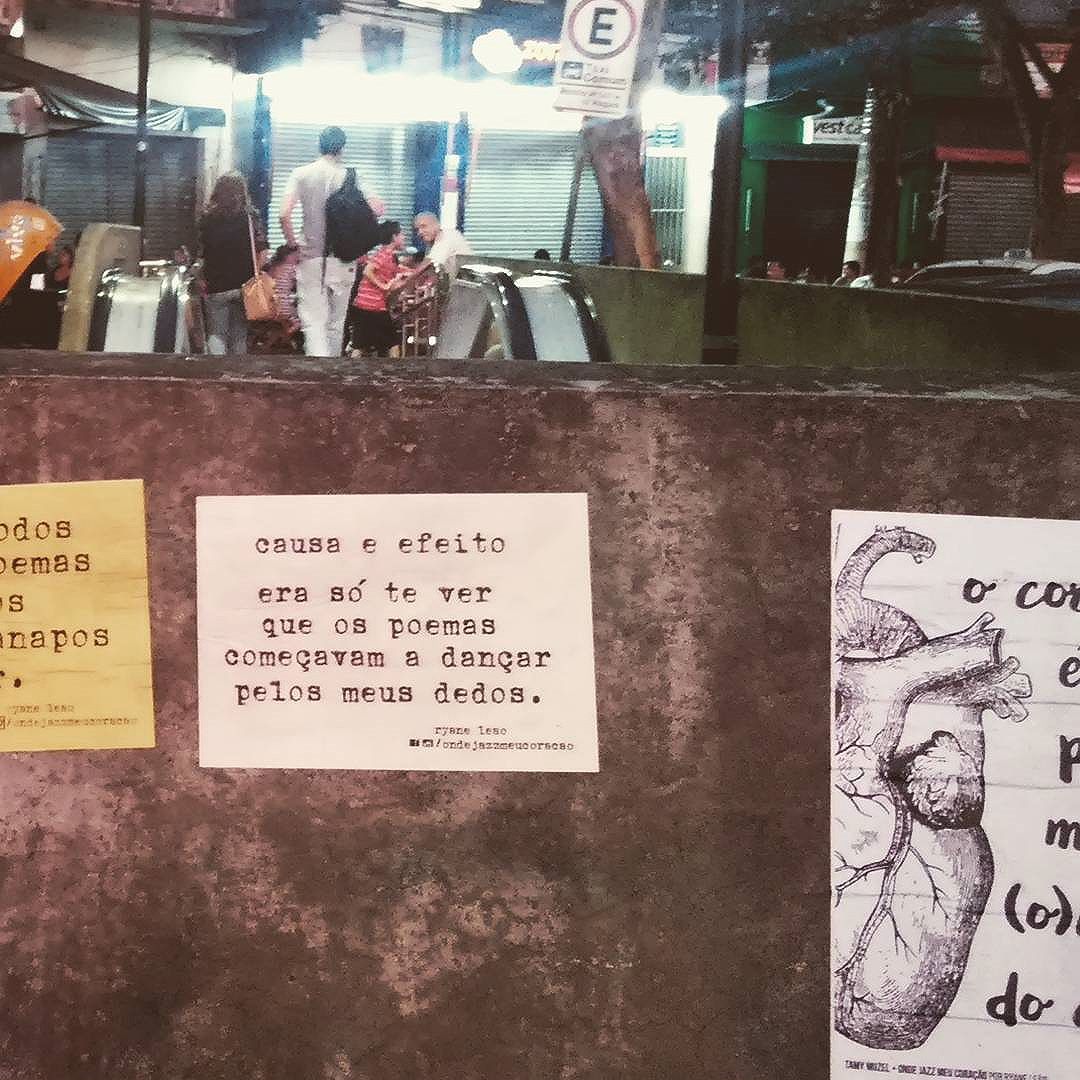 E
vivo
vest ca
odos
oemas
os
anapos
r.
ryane leao
/ondejazzmeucoracao
causa e efeito
era só te ver
que os poemas
começavam a dançar
pelos meus dedos.
ryane leao
/ondejazzmeucoracao
o cor
é
p
m
(o)
do
TAMY MUZEL • ONDE JAZZ MEU CORAÇÃO POR RYANE LEÃO